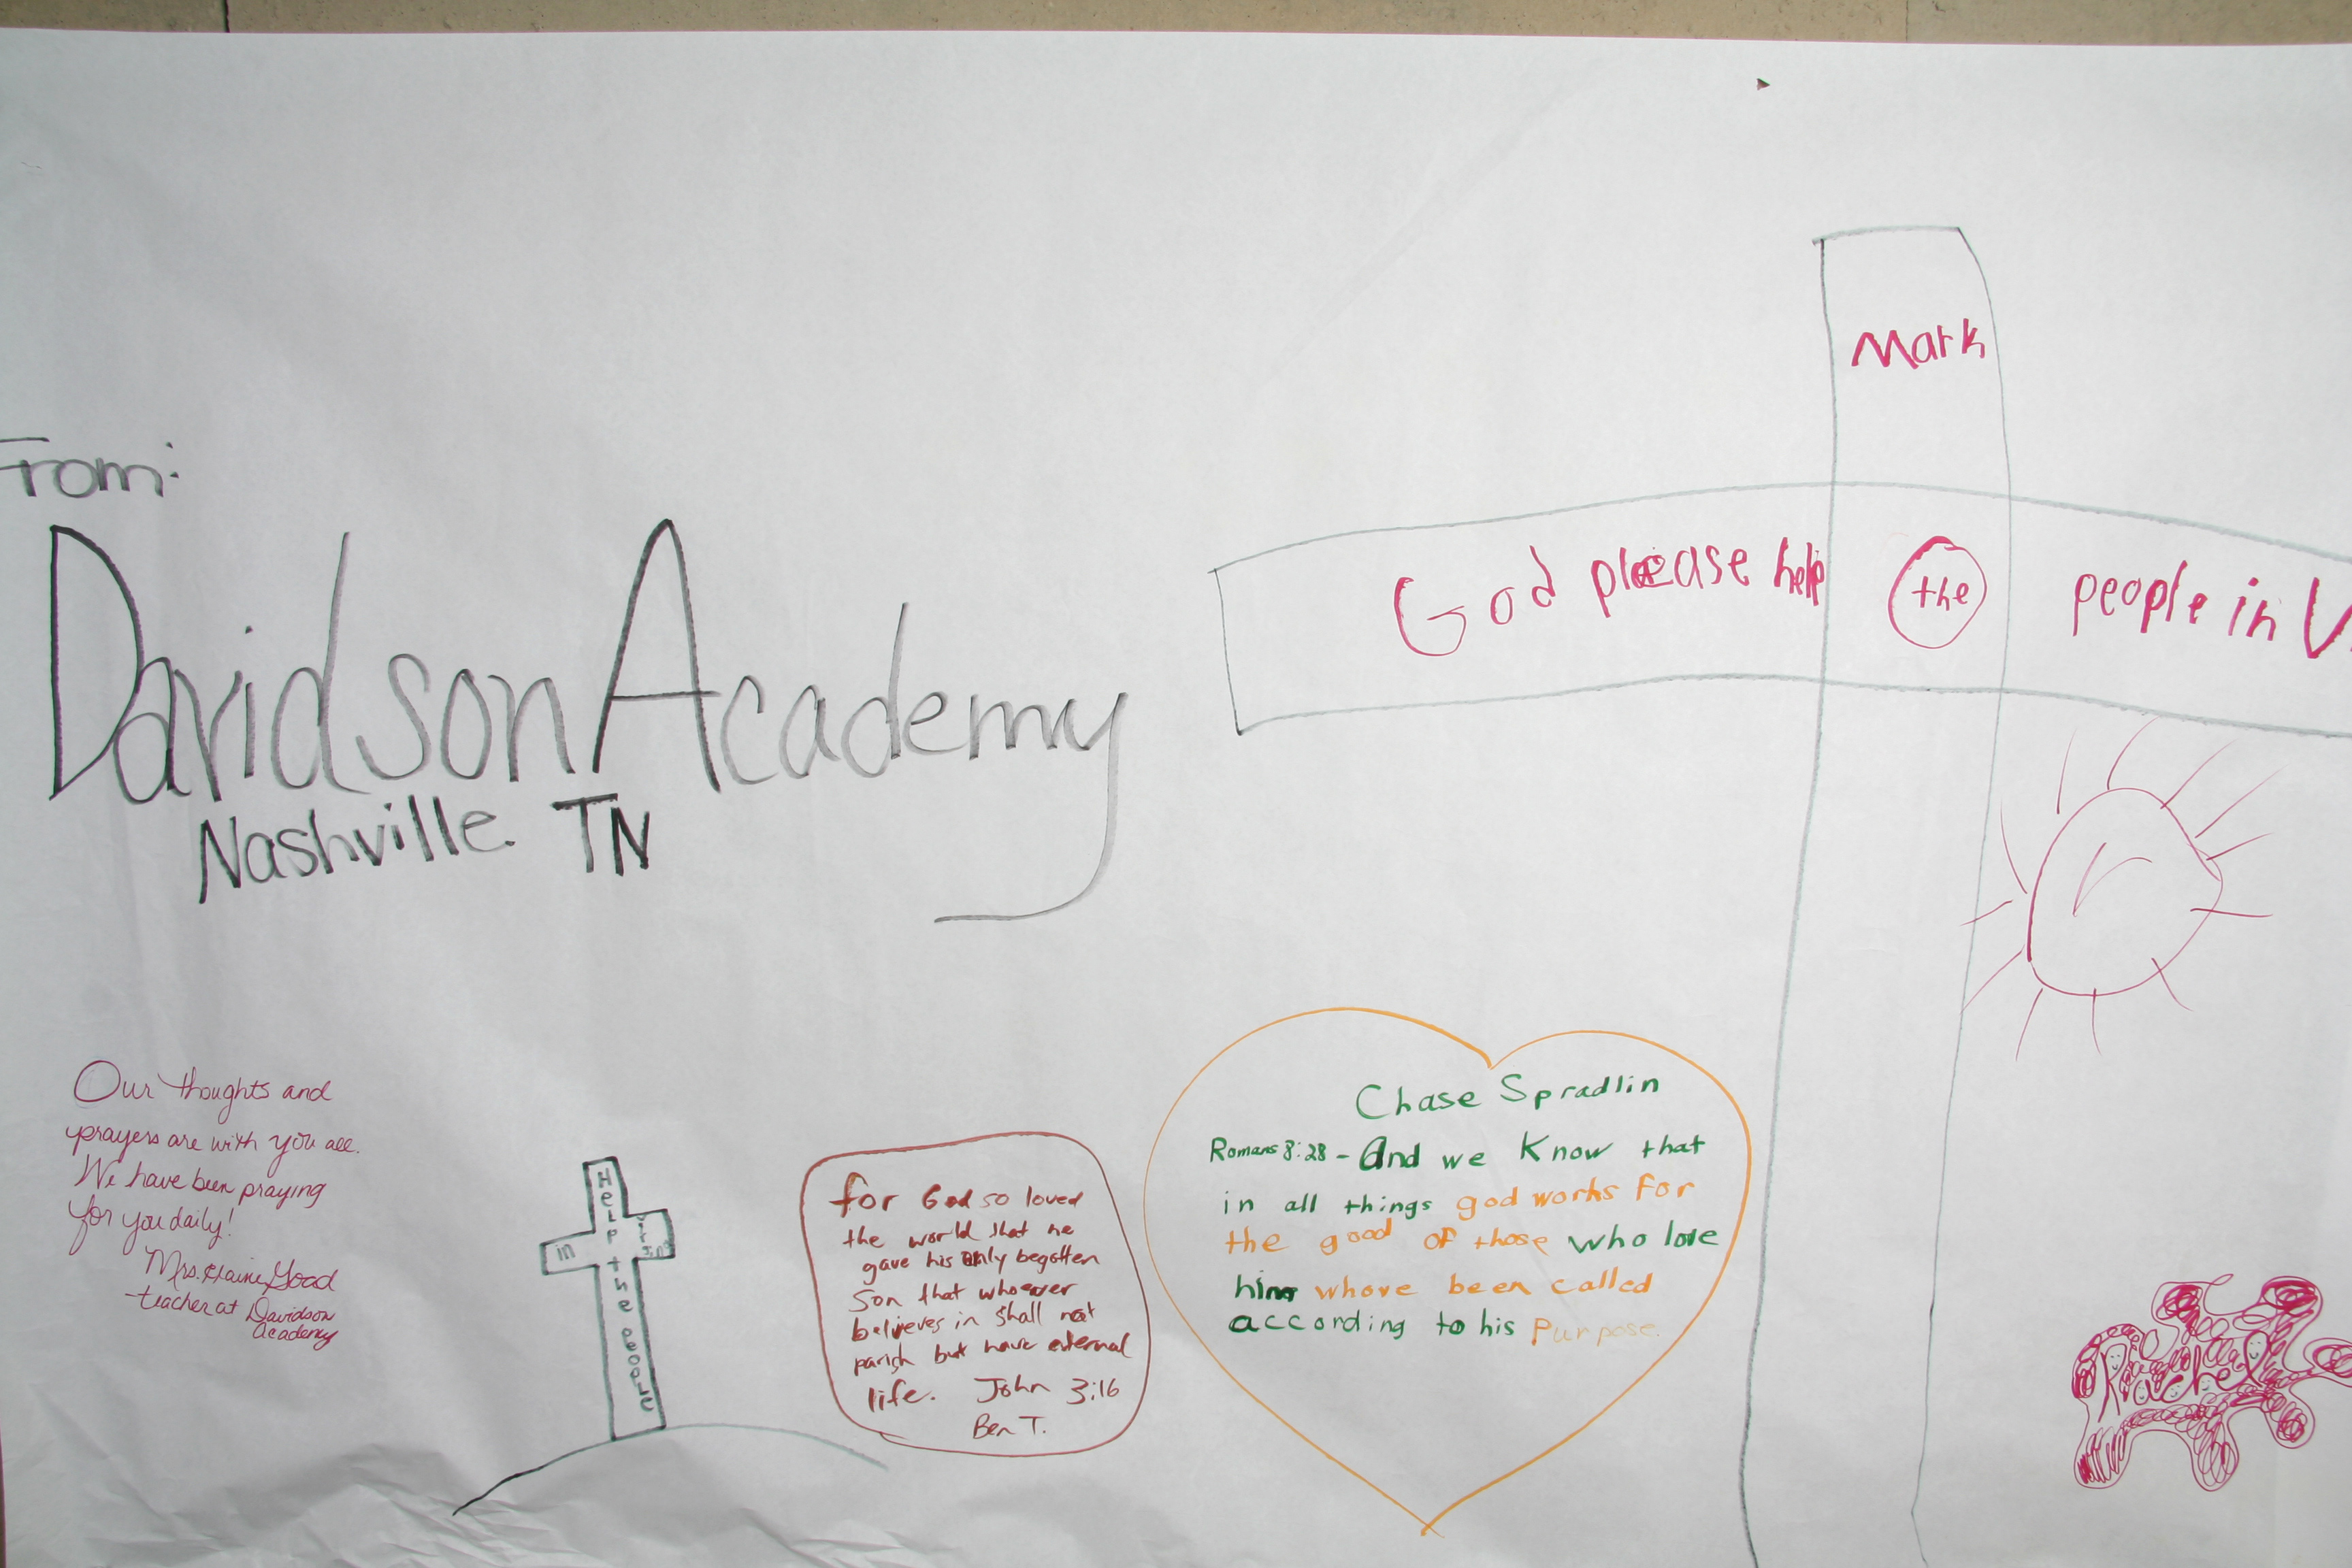 From:
Davidson Academy
Nashville. TN
Mark
God please help the people in V
Our thoughts and
prayers are with you all.
We have been praying
for you daily!
Mrs. Elaine Good
-teacher at Davidson
Academy
Help the people
in
for God so loved
the world that he
gave his only begotten
Son that whoever
believes in shall not
parish but have eternal
life. John 3:16
Ben T.
Chase Spradlin
Romans 8:28 - And we Know that
in all things god works for
the good of those who love
him whove been called
according to his Purpose.
Rachel